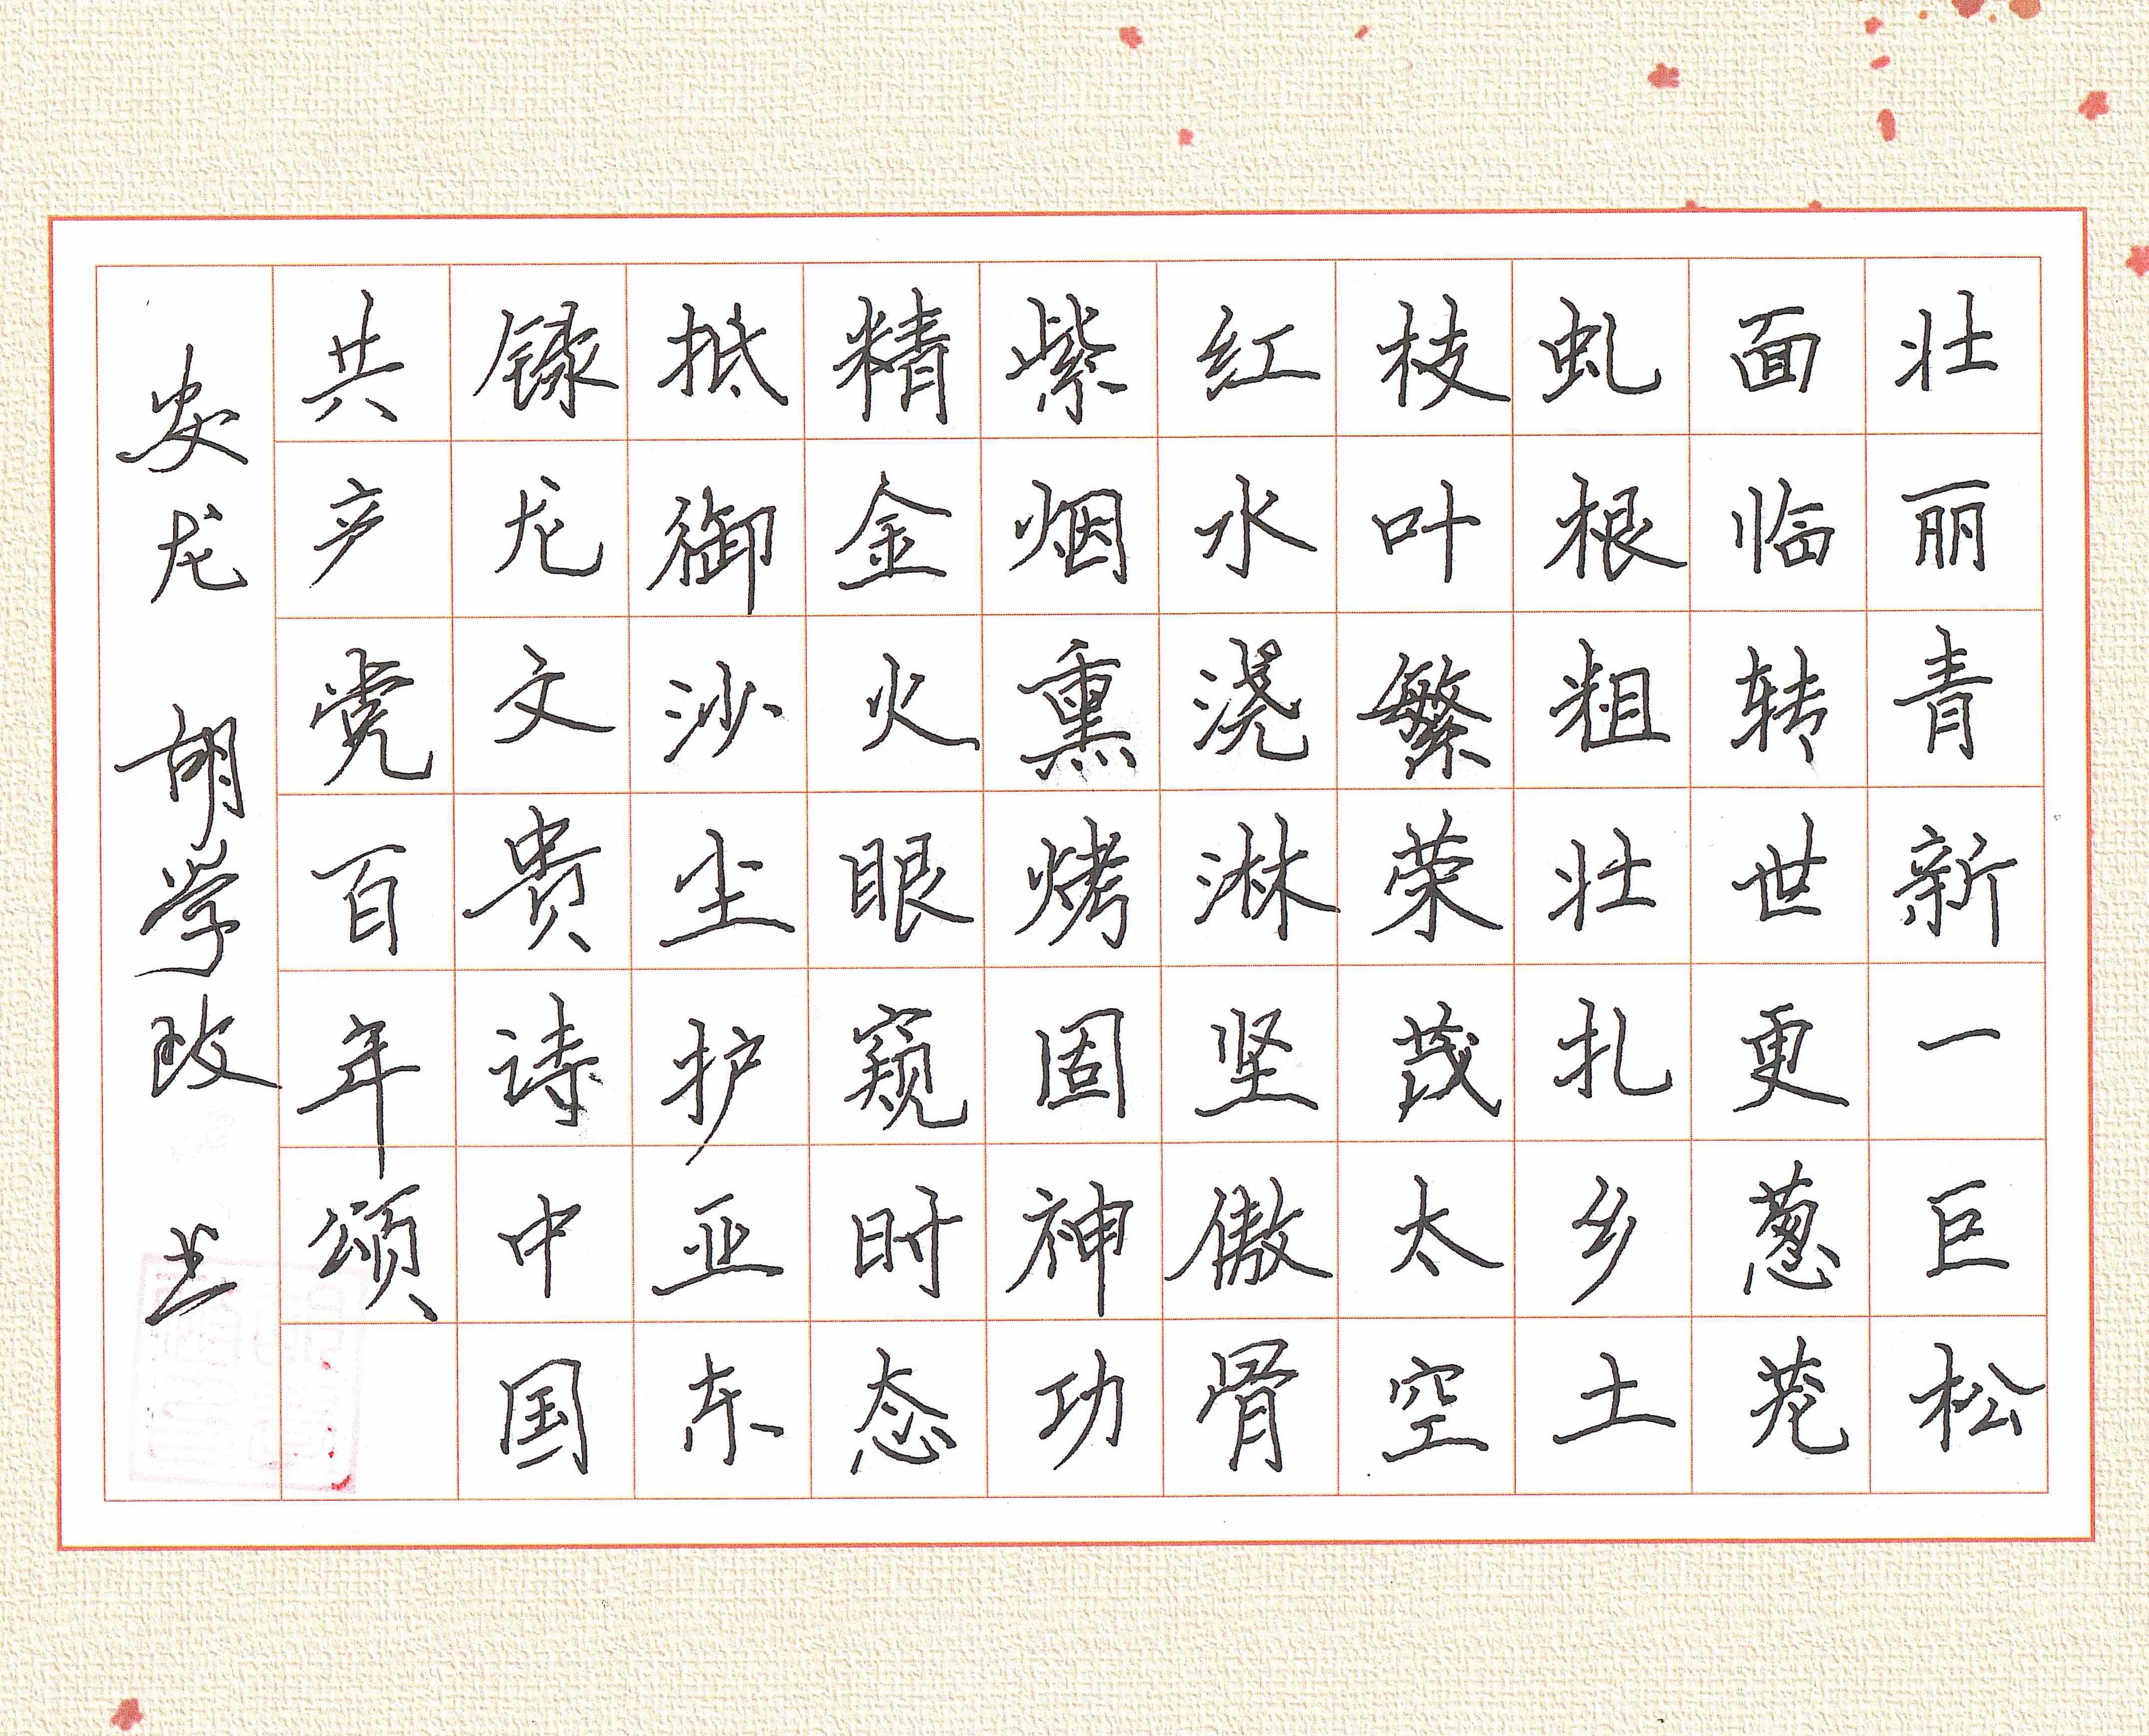 壮丽青新一巨松
面临转世更葱茏
虬根粗壮扎乡土
枝叶繁荣茂太空
红水浇淋坚傲骨
紫烟熏烤固神功
精金火眼窥时态
抵御沙尘护亚东
镓龙文贵诗中国
共产党百年颂
安龙 胡学政 书